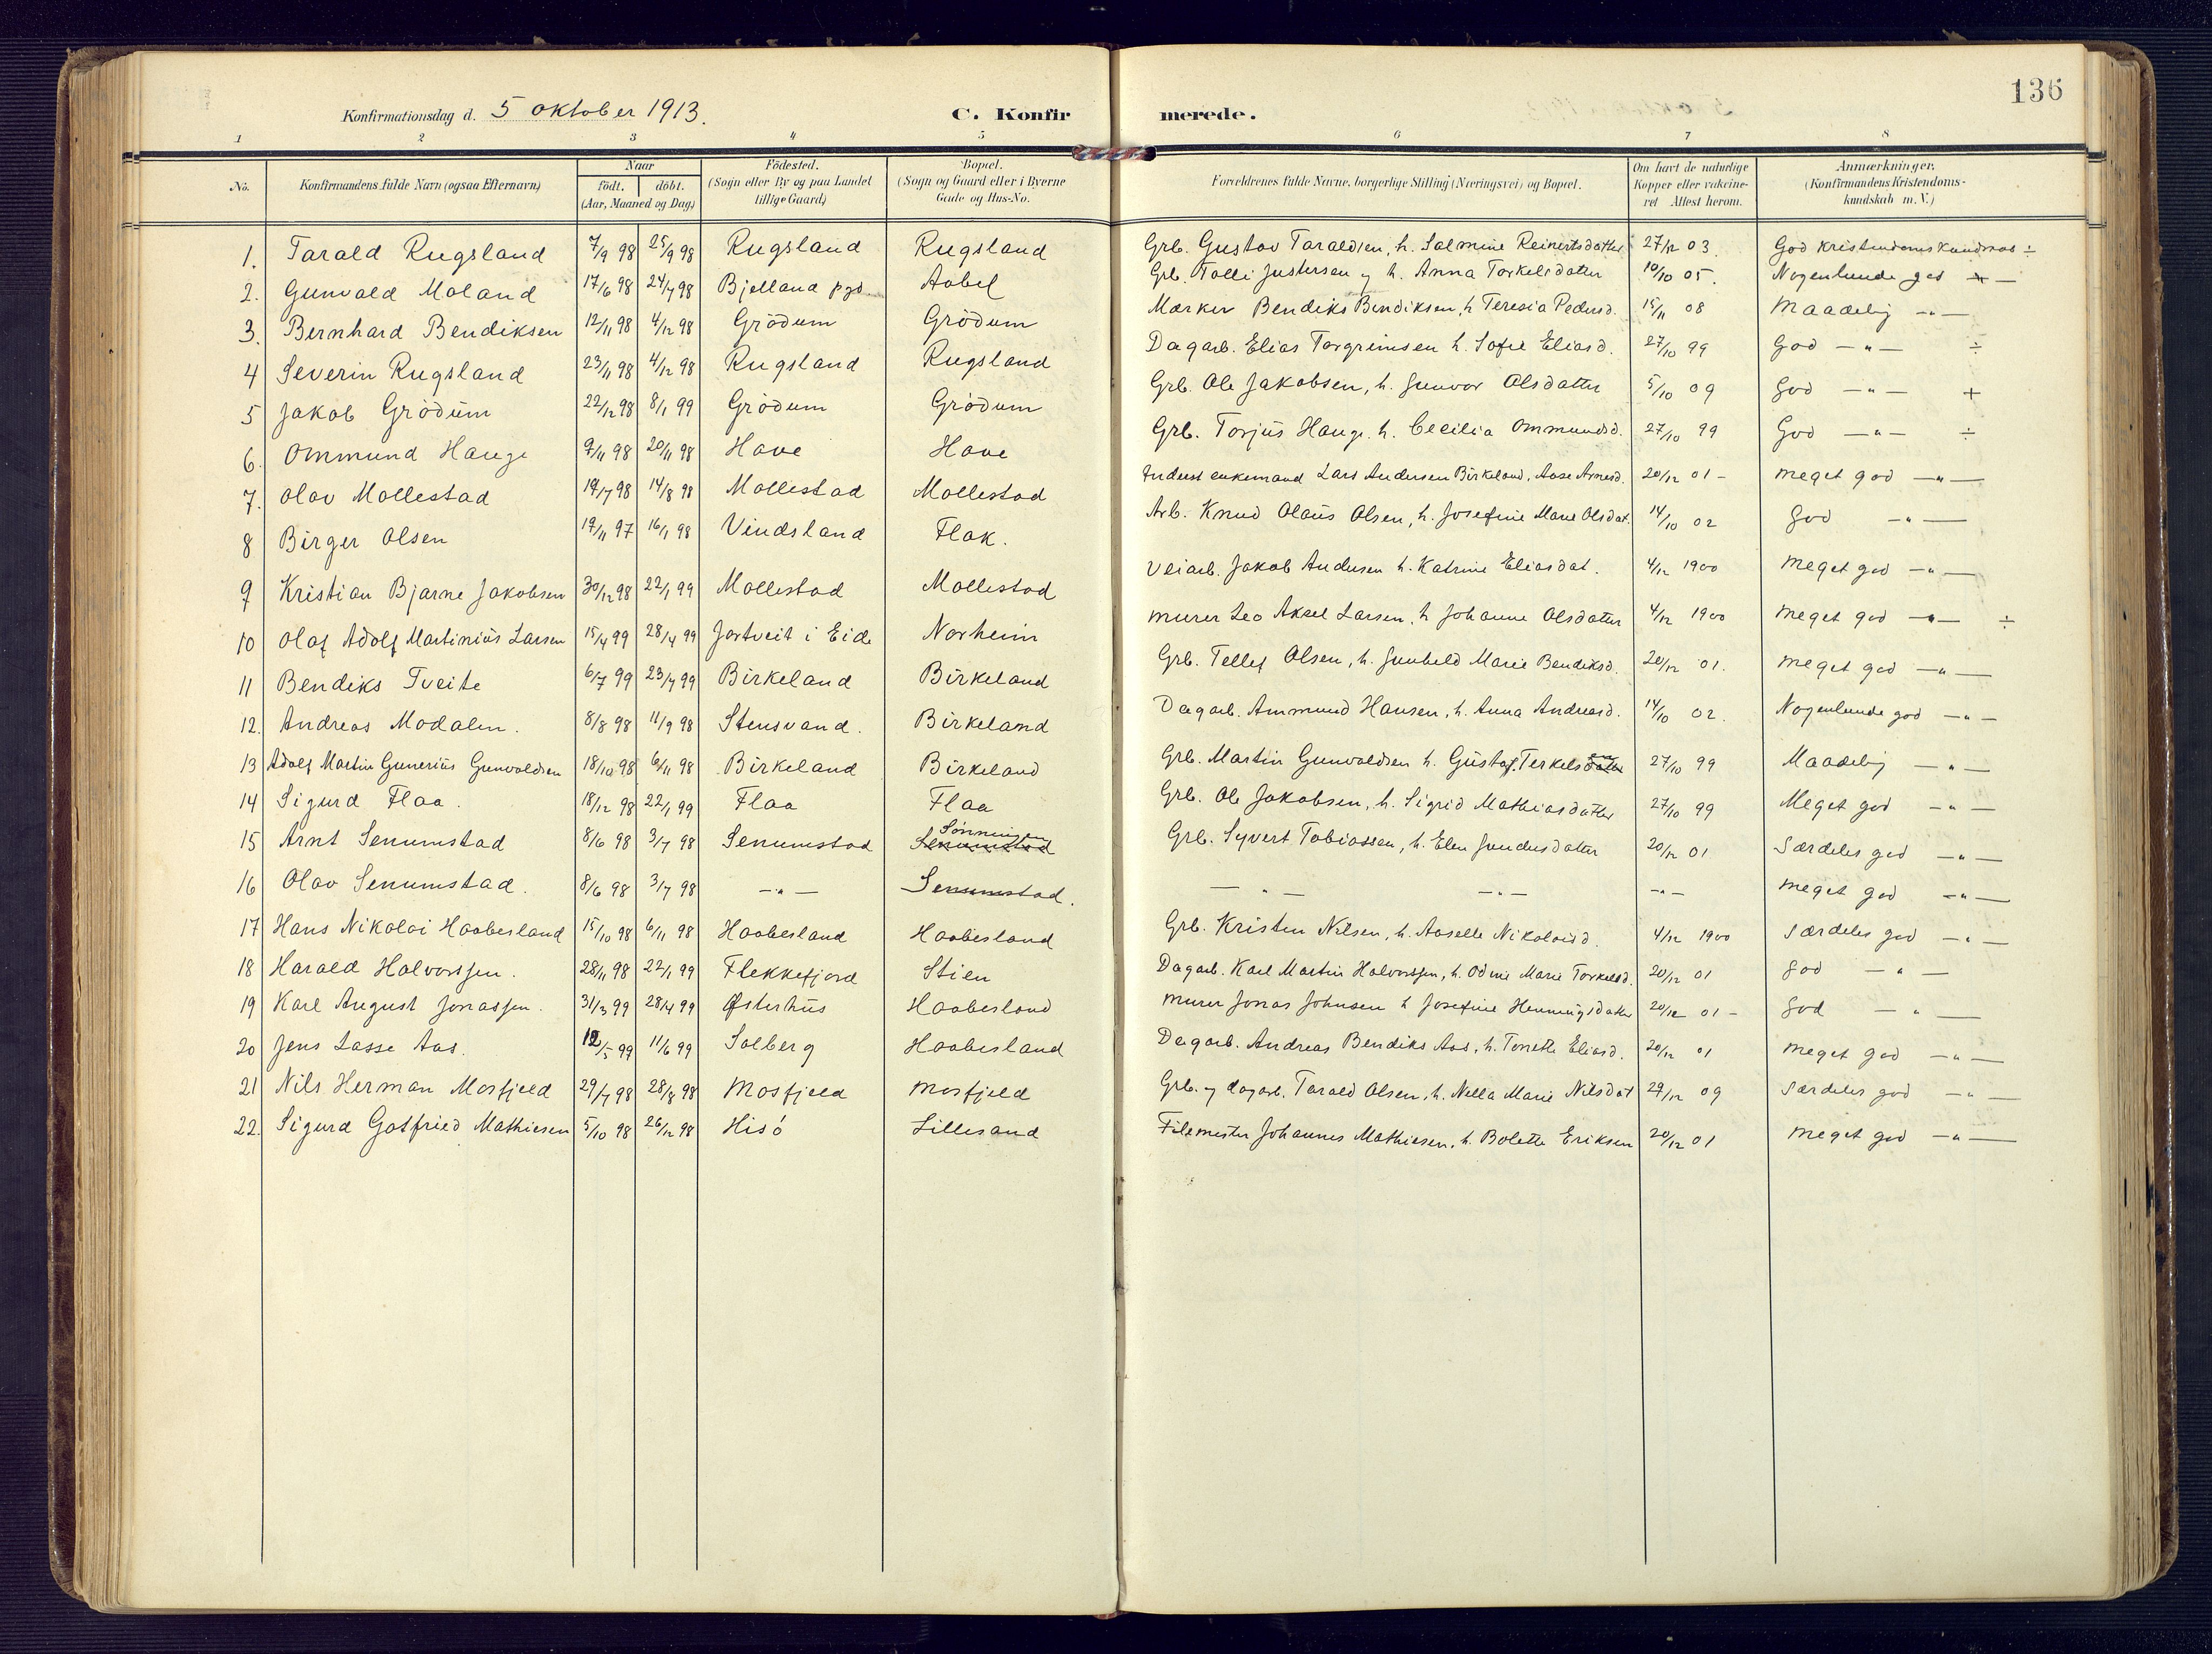 136
Konfirmationsdag d. 5 oktober 1913. C. Konfirmerede.
1 2 3 4 5 6 7 8
No.
Konfirmandens fulde Navn (ogsaa Efternavn)
Naar
födt. döbt.
(Aar, Maaned og Dag)
Födested.
(Sogn eller By og paa Landet
tillige Gaard)
Bopæl.
(Sogn og Gaard eller i Byerne
Gade og Hus-No.
Forældrenes fulde Navne, borgerlige Stilling (Næringsvei) og Bopæl.
Om havt de naturlige
Kopper eller vakcine-
ret Attest herom.
Anmærkninger.
(Konfirmandens Kristendoms-
kundskab m. V.)
1. Tarald Rugsland 7/9 98 25/9 98 Rugsland Rugsland Grb. Gustav Taraldsen, h. Salmine Reinertsdatter 27/12 03. God kristendomskundskab ÷
2. Gunvald Moland 17/6 98 24/7 98 Bjelland pgd. Aabel Grb. Tolli Justersen og h. Anna Torkelsdatter 10/10 05. Nogenlunde god —
3. Bernhard Bendiksen 12/11 98 4/12 98 Grödum Grödum Mærker Bendiks Bendiksen, h Teresia Pedersd. 15/11 08 Maadelig —"—
4 Severin Rugsland 23/11 98 4/12 98 Rugsland Rugsland Dagarb. Elias Torgrimsen h. Sofie Eliasd. 27/10 99 God —"— ÷
5 Jakob Grödum 22/12 98 8/1 99 Grödum Grödum Grb. Ole Jakobsen, h. Gunvor Olsdatter 5/10 09 God —"— +
6. Ommund Hauge 9/11 98 20/11 98 Have Have Grb. Torjus Hauge h. Cecilia Ommundsd. 27/10 99 God —"— ÷
7. Olav Mollestad 19/7 98 14/8 98 Mollestad Mollestad Inderst enkemand Lars Andersen Birkeland, Aase Arnesd. 20/12 01 - Meget god —"—
8 Birger Olsen 19/11 97 16/1 98 Vindsland Flak. Arb. Knud Olaus Olsen, h. Josefine Marie Olsdat. 14/10 02 God —"—
9 Kristian Bjarne Jakobsen 30/12 98 22/1 99 Mollestad Mollestad Veiarb. Jakob Andersen h. Katrine Eliasdat. 4/12 1900 Meget god —"—
10 Olaf Adolf Martinius Larsen 15/4 99 28/4 99 Jortveit i Eide Norheim Murer Leo Aksel Larsen, h Johanne Olsdatter 4/12 1900 Meget god —"— ÷
11 Bendiks Tveite 6/7 99 23/7 99 Birkeland Birkeland Grb. Tellef Olsen, h. Gunheld Marie Bendiksd. 20/12 01. Meget god —"—
12. Andreas Modalen. 8/8 98 11/9 98 Stensvand. Birkeland Dagarb. Ammund Hansen, h. Anna Andreasd. 14/10 02. Nogenlunde god —"—
13 Adolf Martin Gunerius Gunvaldsen 18/10 98 6/11 98 Birkeland Birkeland Grb. Martin Gunvaldsen h. Gustaf. Terkelsdatter 27/10 99 Maadelig —"—
14 Sigurd Flaa. 18/12 98 22/1 99 Flaa Flaa Grb. Ole Jakobsen, h. Sigrid Mathiasdatter 27/10 99 Meget god —"—
15 Arnt Senumstad 8/6 98 3/7 98 Senumstad Senumstad Sönningen Grb. Syvert Tobiassen, h. Elen Gundersdatter 20/12 01 Særdeles god —"—
16 Olav Senumstad. 8/6 98 3/7 98 —"— Senumstad. —"— —"— —"— Meget god —"—
17 Hans Nikolai Haabesland 15/10 98 6/11 98 Haabesland Haabesland Grb. Kristen Nilsen, h. Aaselle Nikolaisd. 4/12 1900 Særdeles god —"—
18 Harald Halvorssen. 28/11 98 22/1 99 Flekkefjord Stien Dagarb. Karl Martin Halvorssen, h. Odine Marie Torkelsd. 20/12 01 God —"—
19 Karl August Jonassen. 31/3 99 28/4 99 Østerhus Haabesland Murer Jonas Johnsen h Josefine Henningsdatter 20/12 01 - God —"—
20 Jens Lasse Aas. 12/5 99 11/6 99 Solberg Haabesland Dagarb. Andreas Bendiks Aas, h. Tonette Eliasd. 20/12 01 Meget god —"—
21 Nils Herman Mosfjeld 29/7 98 28/8 98 Mosfjeld Mosfjeld Grb. og dagarb. Tarald Olsen, h. Nella Marie Nilsdat 29/12 09 Særdeles god —"—
22. Sigurd Gotfried Mathiesen 5/10 98 26/12 98 Hisö Lillesand Filemester Johannes Mathiesen, h. Bolette Eriksen 20/12 01 Meget god —"—